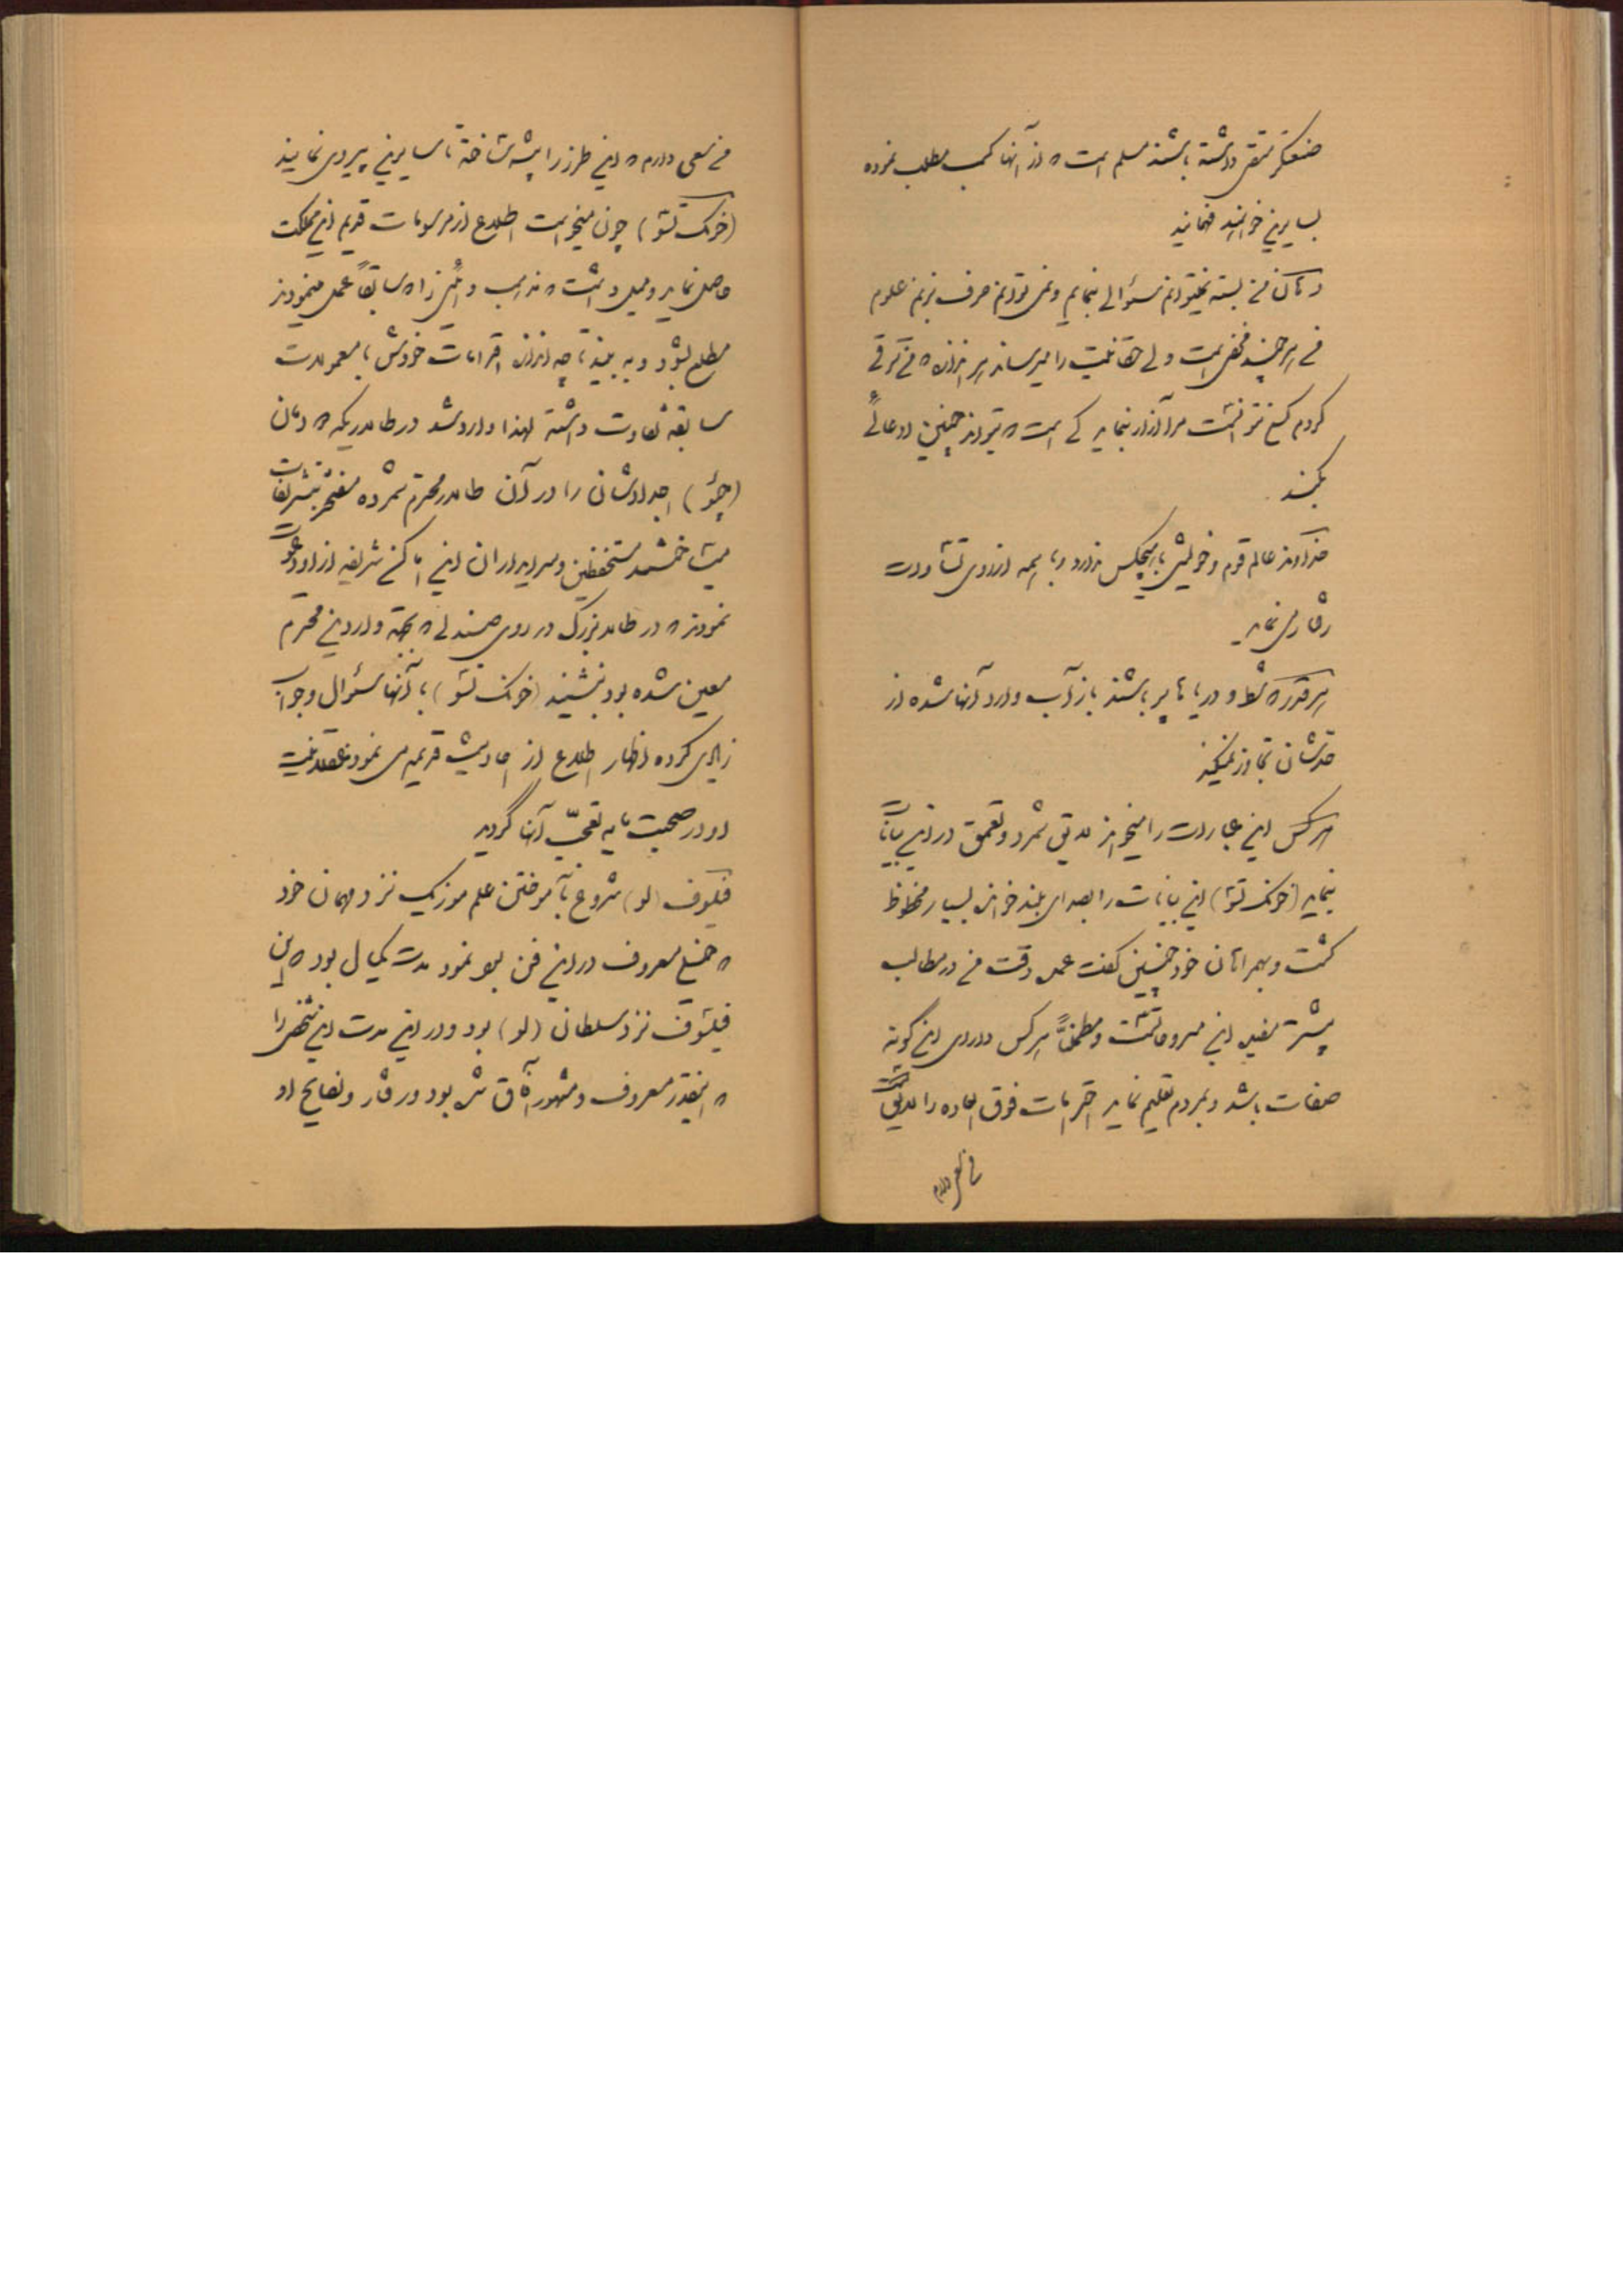 صنعتگر متقی داشته باشند مسلم است که از آنها کسب مطلب نموده
بسایرین خواهند فهمانید
دهان من بسته نمیتوانم سؤالی بنمایم و نمی توانم حرف بزنم علوم
من هر چند مختصر است ولی حقانیت را میرساند هر اندازه که من ترقی
کردم کسی نتوانست مرا آزار نماید کی است که بتواند چنین ادعائی
بکند
خداوند عالم قوم و خویشی با هیچکس ندارد و با همه از روی تساوات
رفتار می نماید
هر قدر که شط و دریاها پر باشند باز آب وارد آنها شده از
حدشان تجاوز نمیکند
هر کس این عبارات را میخواند لایق شمرد و تعمق در این بیانات
نماید (خونک تسو) این بیانات را بصدای بلند خوانده بسیار محظوظ
گشت و بهمراهان خود چنین گفت عمده دقت من در مطالب
بیشتر مفید این است و مطمئناً هر کس دارای این گونه
صفات باشد و بمردم تعلیم نماید احترامات فوق العاده را لایق است
من سعی دارم
من سعی دارم که این طرز را پیشه ساخته تا سایرین پیروی نمایند
(خونک تسو) چون میخواست اطلاع از مرسومات قدیم این مملکت
حاصل نماید و میل داشت که مذهب و آئین را که سابقاً عمل مینمودند
مطلع بشود و به بیند تا چه اندازه احترامات خودش با معمولات
سابقه تفاوت داشته لهذا وارد شد در طالاریکه در آن
(چئو) اجدادشان را در آن طالار محترم شمرده مفتخر بتشریفات
میساختند مستحفظین و سرایداران این اماکن شریفه از او دعوت
نمودند که در طالار بزرگ در روی صندلی که بجهة واردین محترم
معین شده بود بنشیند (خونک تسو) با آنها سؤال و جواب
زیادی کرده اظهار اطلاع از احادیث قدیمه می نمود عقلانیت
او در صحبت مایه تعجّب آنها گردید
فیلسوف (لو) شروع بآموختن علم موزیک نزد مهمان خود
که خیلی معروف در این فن بود نمود مدت یکسال بود که این
فیلسوف نزد سلطان (لو) بود و در این مدت این شخص را
که اینقدر معروف و مشهور آفاق شده بود و رفتار و نصایح او